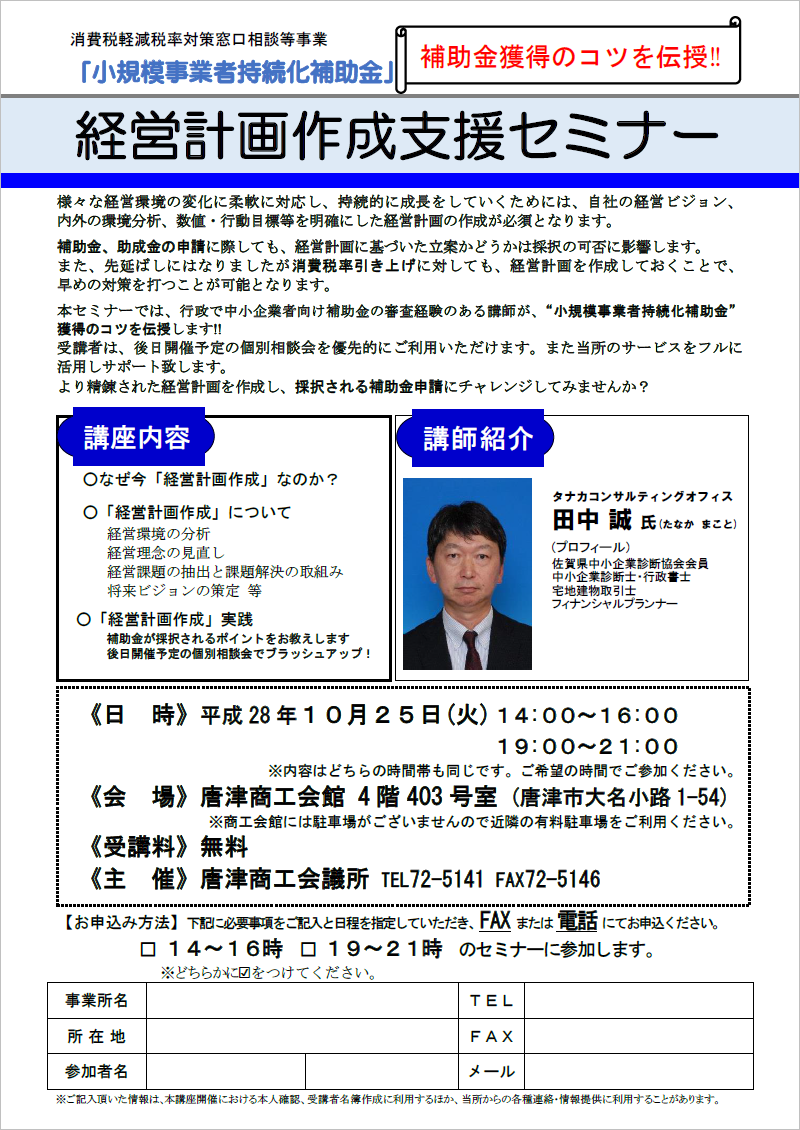 消費税軽減税率対策窓口相談等事業
「小規模事業者持続化補助金」
補助金獲得のコツを伝授!!
経営計画作成支援セミナー
様々な経営環境の変化に柔軟に対応し、持続的に成長をしていくためには、自社の経営ビジョン、
内外の環境分析、数値・行動目標等を明確にした経営計画の作成が必須となります。
補助金、助成金の申請に際しても、経営計画に基づいた立案かどうかは採択の可否に影響します。
また、先延ばしにはなりましたが消費税率引き上げに対しても、経営計画を作成しておくことで、
早めの対策を打つことが可能となります。
本セミナーでは、行政で中小企業者向け補助金の審査経験のある講師が、“小規模事業者持続化補助金”
獲得のコツを伝授します!!
受講者は、後日開催予定の個別相談会を優先的にご利用いただけます。また当所のサービスをフルに
活用しサポート致します。
より精錬された経営計画を作成し、採択される補助金申請にチャレンジしてみませんか？
講座内容
○なぜ今「経営計画作成」なのか？
○「経営計画作成」について
経営環境の分析
経営理念の見直し
経営課題の抽出と課題解決の取組み
将来ビジョンの策定 等
○「経営計画作成」実践
補助金が採択されるポイントをお教えします
後日開催予定の個別相談会でブラッシュアップ！
講師紹介
タナカコンサルティングオフィス
田中 誠 氏（たなか まこと）
（プロフィール）
佐賀県中小企業診断協会会員
中小企業診断士・行政書士
宅地建物取引士
フィナンシャルプランナー
《日　時》平成28年１０月２５日（火）１４：００～１６：００
１９：００～２１：００
※内容はどちらの時間帯も同じです。ご希望の時間でご参加ください。
《会　場》唐津商工会館 4階403号室（唐津市大名小路1-54）
※商工会館には駐車場がございませんので近隣の有料駐車場をご利用ください。
《受講料》無料
《主　催》唐津商工会議所 TEL72-5141 FAX72-5146
【お申込み方法】下記に必要事項をご記入と日程を指定していただき、FAX または 電話 にてお申込ください。
□ １４～１６時　□ １９～２１時　のセミナーに参加します。
※どちらかに☑をつけてください。
事業所名　ＴＥＬ
所 在 地　ＦＡＸ
参加者名　メール
※ご記入頂いた情報は、本講座開催における本人確認、受講者名簿作成に利用するほか、当所からの各種連絡・情報提供に利用することがあります。